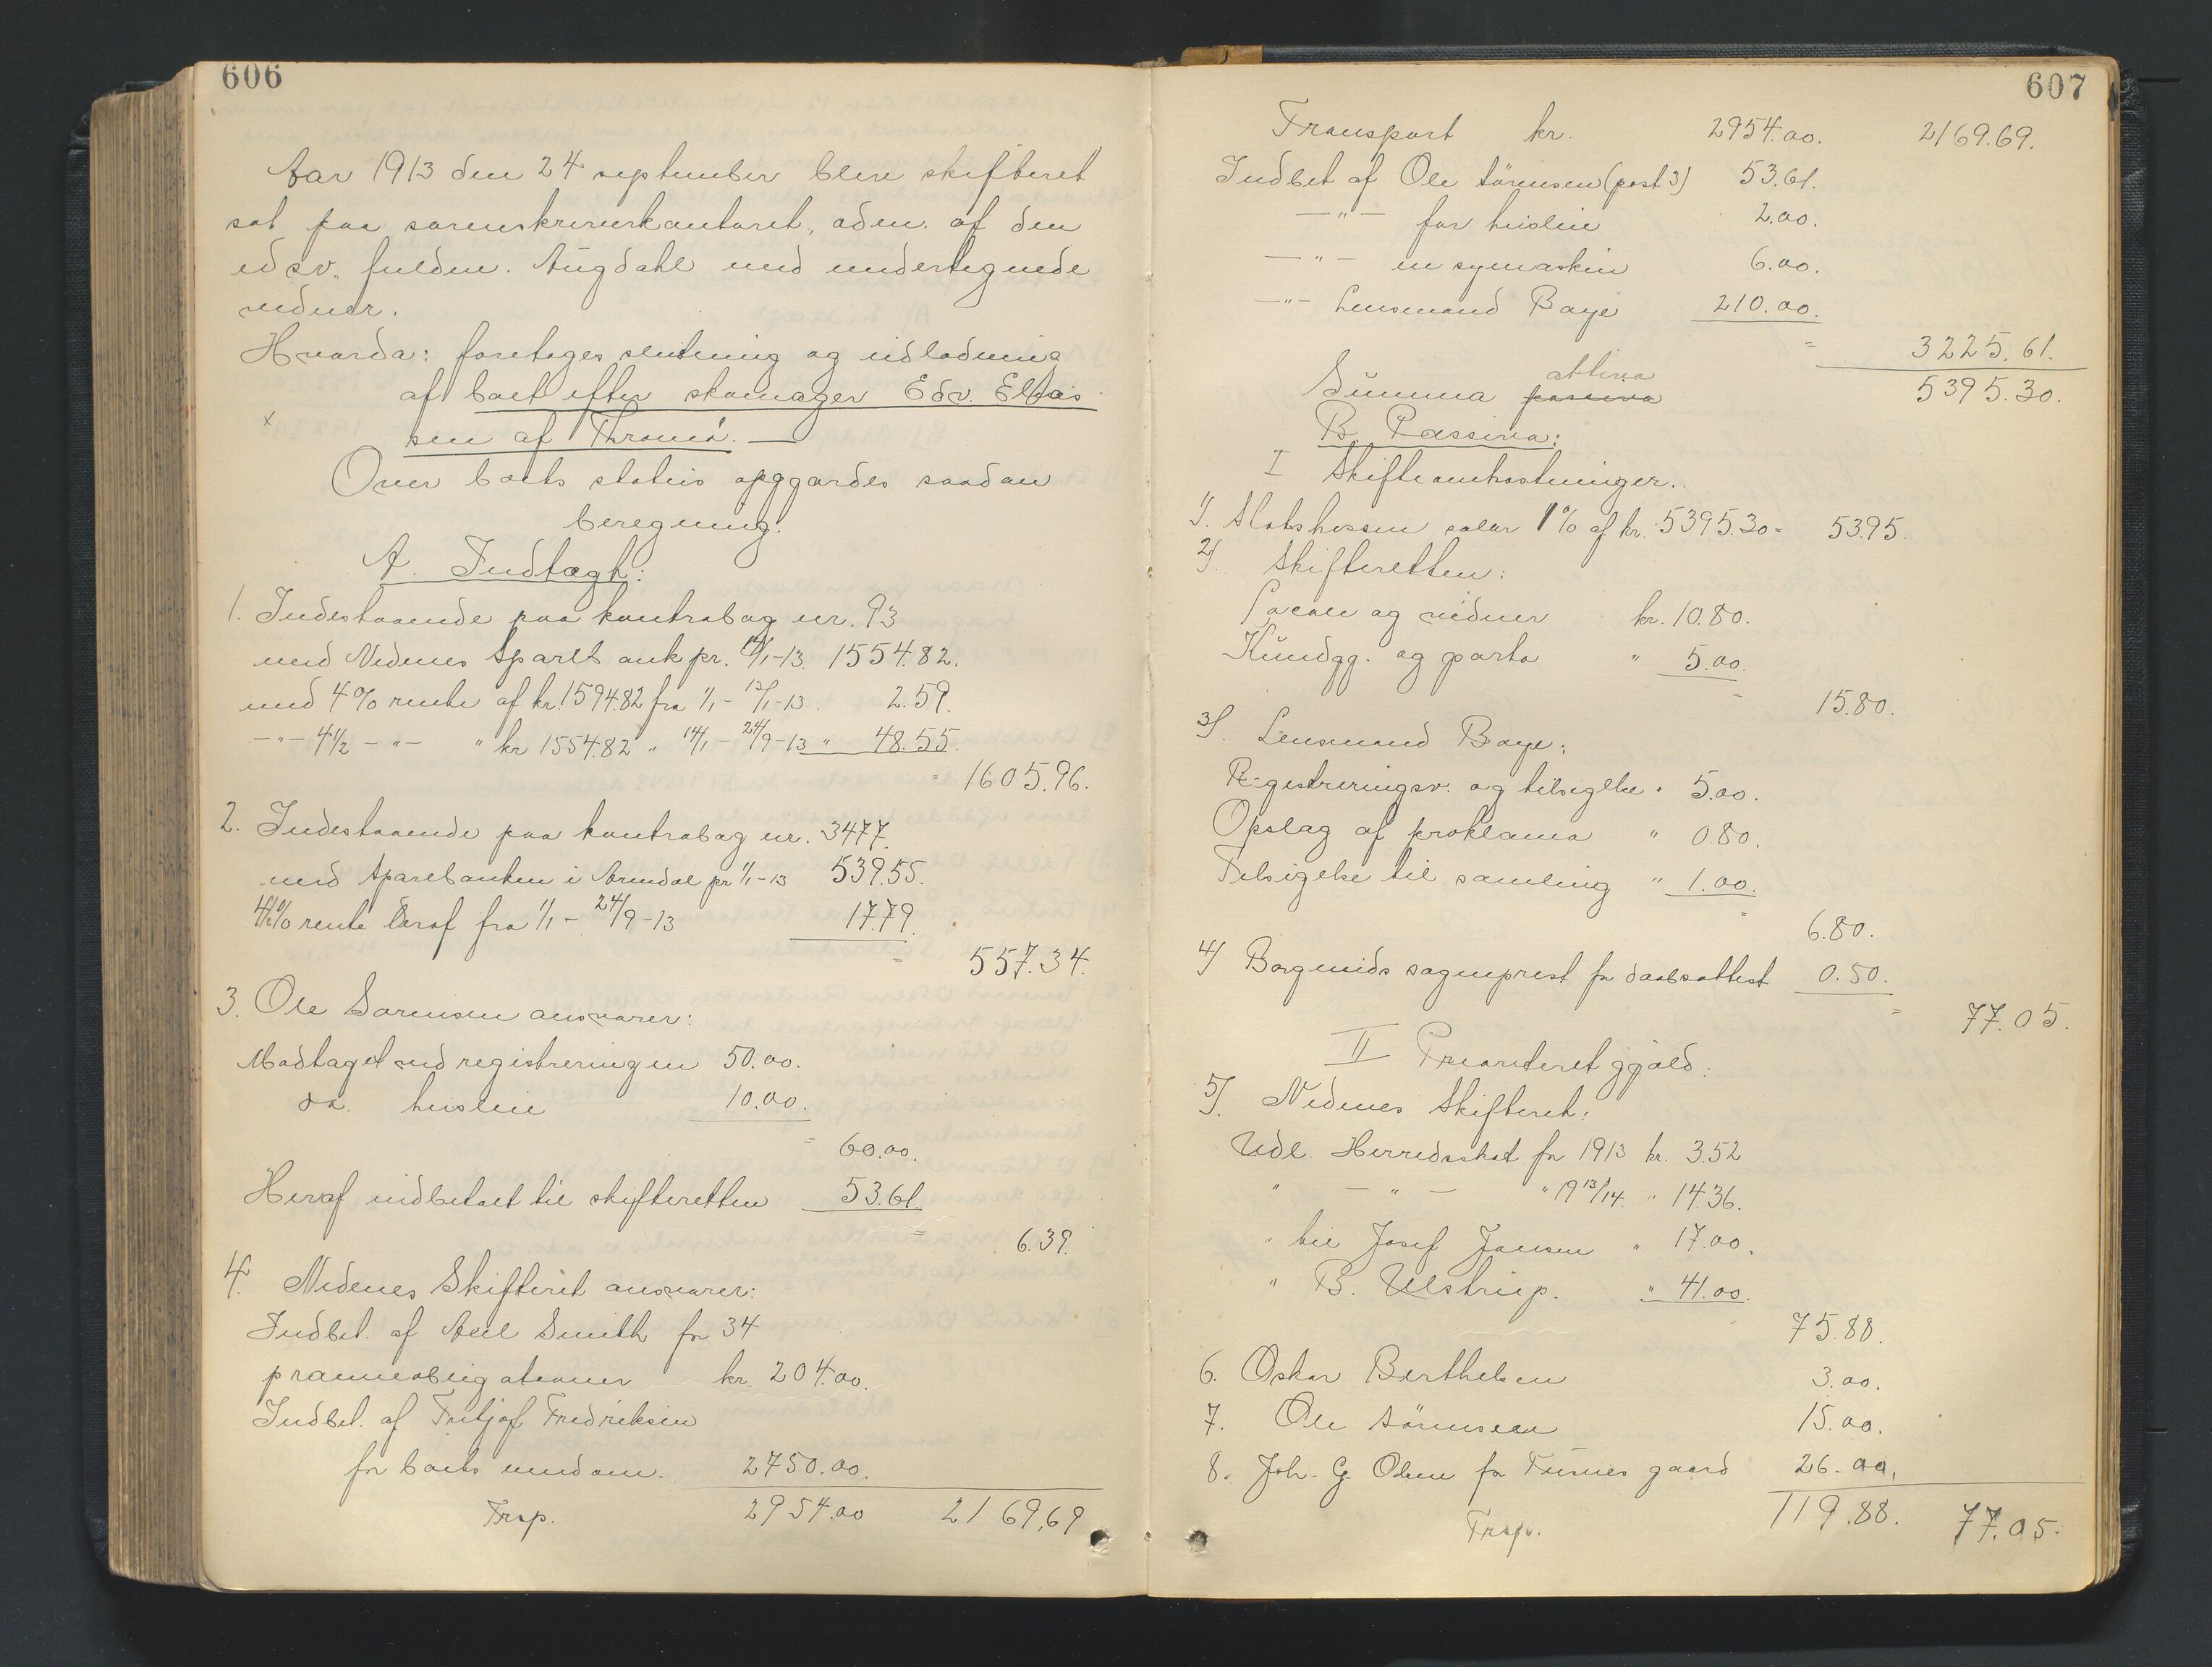 606
Aar 1913 den 24 september blev skifteret
sat paa sorenskriverkontoret, adm. af den
edsv. fuldm. Augdahl med undertegnede
vidner.
Hvorda: foretoges slutning og udlodning
af boet efter skomager Edv. Elias
x sen af Thromö. —
Over boets status opgjordes saadan
beregning:
A. Indtægt:
1. Indestaaende paa kontrabog nr. 93
med Nedenes Sparebank pr. 14/1-13. 1554.82.
med 4% rente af kr. 1594.82 fra 1/1 - 13/1-13. 2.59.
—"— 4½ —"— " kr 1554.82 " 14/1 - 24/9-13 " 48.55.
= 1605.96.
2. Indestaaende paa kontrabog nr. 3477.
med Sparebanken i Arendal pr 1/1-13 539.55.
4½% rente deraf fra 1/1 - 24/9-13 17.79.
= 557.34.
3. Ole Sörensen ansvarer:
Modtaget ved registreringen 50.00.
do. husleie 10.00.
= 60.00.
Heraf indbetalt til skifteretten 53.61.
= 6.39.
4. Nedenes Skifteret ansvarer:
Indbet. af Axel Smith for 34
præmieobligationer kr. 204.00.
Indbet. af Fritjof Fredriksen
for boets eiendom. 2750.00.
Trsp. 2954.00 2169,69
607
Transport kr. 2954.00. 2169.69.
Indbet af Ole Sörensen (post 3) 53.61.
—"— for husleie 2.00.
—"— en symaskin 6.00.
—"— Lensmand Boye 210.00.
= 3225.61.
aktiva
Summa passiva 5395.30.
B. Passiva:
I Skifteomkostninger.
1). Statskassen salær 1% af kr. 5395.30 = 53.95.
2). Skifteretten:
Locale og vidner kr. 10.80.
Kundgj. og porto " 5.00.
= 15.80.
3). Lensmand Boye:
Registreringsv. og tilsigelse " 5.00.
Opslag af proklama " 0.80.
Tilsigelse til samling " 1.00.
= 6.80.
4) Borgunds sogneprest for daabsattest 0.50.
= 77.05.
II Prioriteret gjæld:
5). Nedenes Skifteret:
Udl. Herredsskat for 1913 kr. 3.52
" —"— " 1913/14. " 14.36.
" til Josef Jansen " 17.00.
" B. Ulstrup. " 41.00.
75.88.
6. Oskar Berthelsen 3.00.
7. Ole Sörensen 15.00.
8. Joh. G. Olsen for Furnes gaard 26.00.
Trsp. 119.88. 77.05.